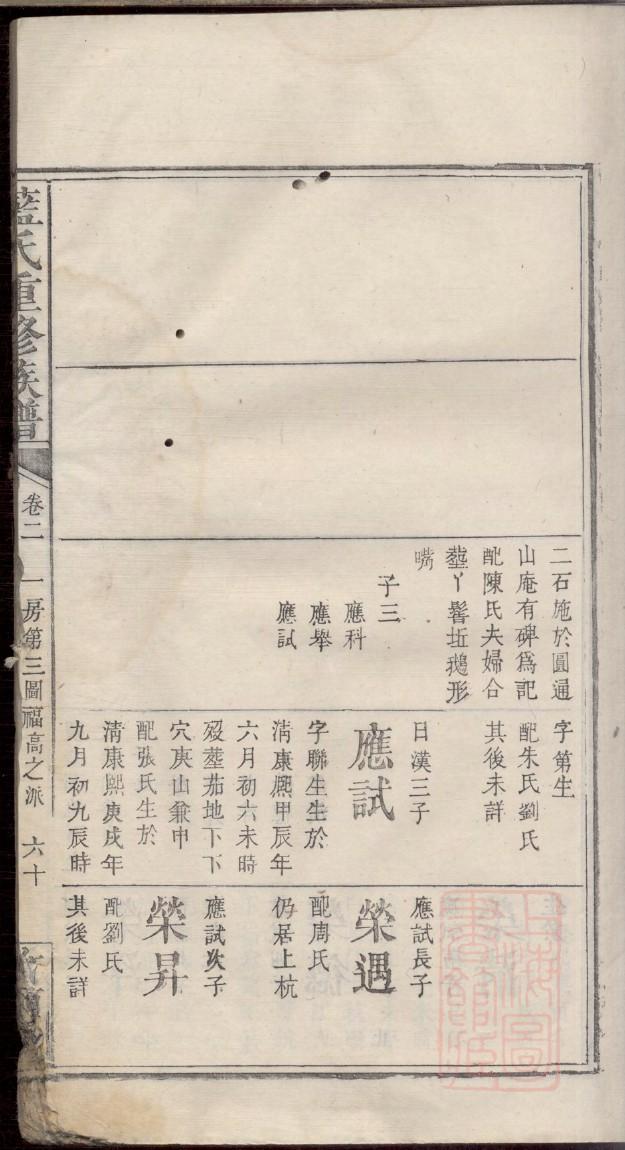 二石施於圓通
山庵有碑爲記
配陳氏夫婦合
塟丫髻坵鵝形
嘴
子三
應科
應舉
應試
字第生
配朱氏劉氏
其後未詳
日漢三子
應試
字聯生生於
淸康熈甲辰年
六月初六未時
殁塟茄地下下
穴庚山兼申
配張氏生於
淸康熈庚戌年
九月初九辰時
應試長子
榮遇
配周氏
仍居上杭
應試次子
榮昇
配劉氏
其後未詳
藍氏重修族譜
卷二
一房第三圖福高之派
六十